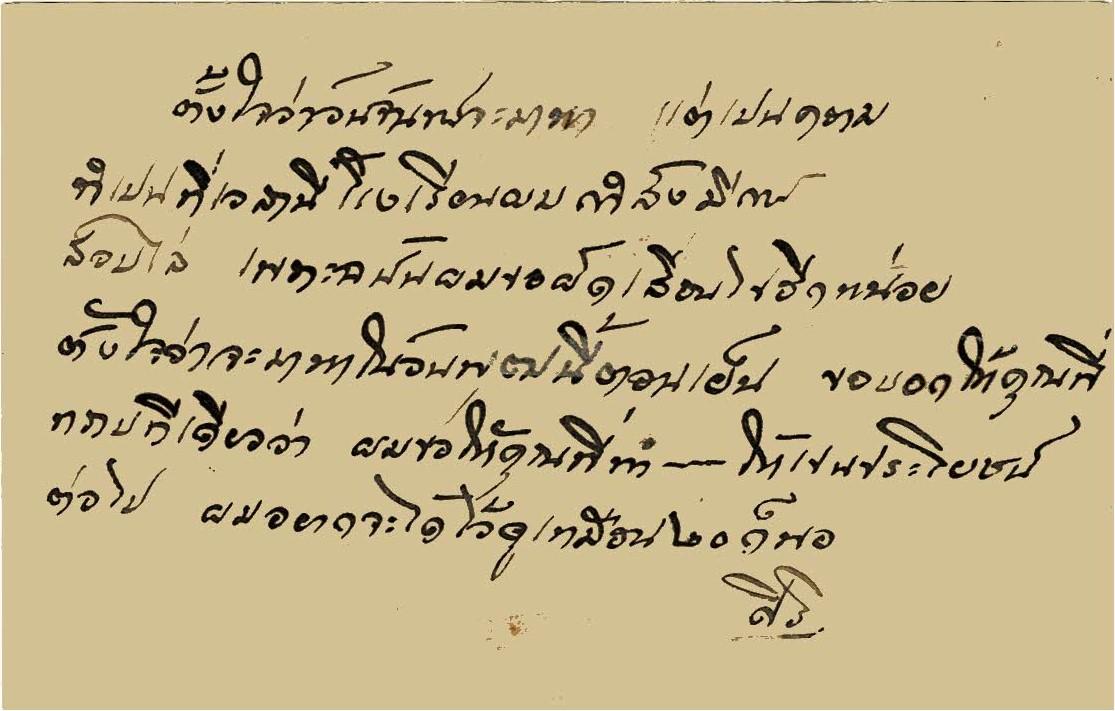 ตั้งใจว่าวันจันทร์จะมาหา แต่เปน
ที่เวลานี้โรงเรียนผมกำลังมีการ
สอบไล่ เพราะฉนั้นผมขอผัดเลื่อนไปอีกหน่อย
ตั้งใจว่าจะมาหาในวันพุฒนี้ตอนเย็น ขอบอกให้คุณพี่
ทีเดียวว่า ผมขอให้คุณพี่ทำ — ให้เปนประโยชน์
ต่อไป ผมอยากจะได้ไว้ดูเหมือน ๒๐ ก็พอ
สิริ